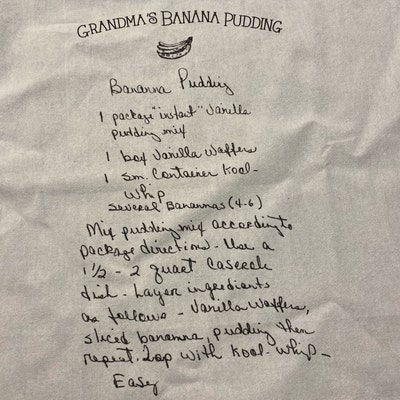 GRANDMA'S BANANA PUDDING
Bananna Pudding
1 package "instant" Vanilla
pudding mix
1 box Vanilla Waffers
1 sm. Container Kool-
Whip
Several Banannas (4-6)
Mix pudding mix according to
package directions - Use a
1 1/2 - 2 quart Caserole
dish - Layer ingredients
as follows - Vanilla Waffers,
sliced bananna, pudding then
repeat. Top with Kool-Whip -
Easy